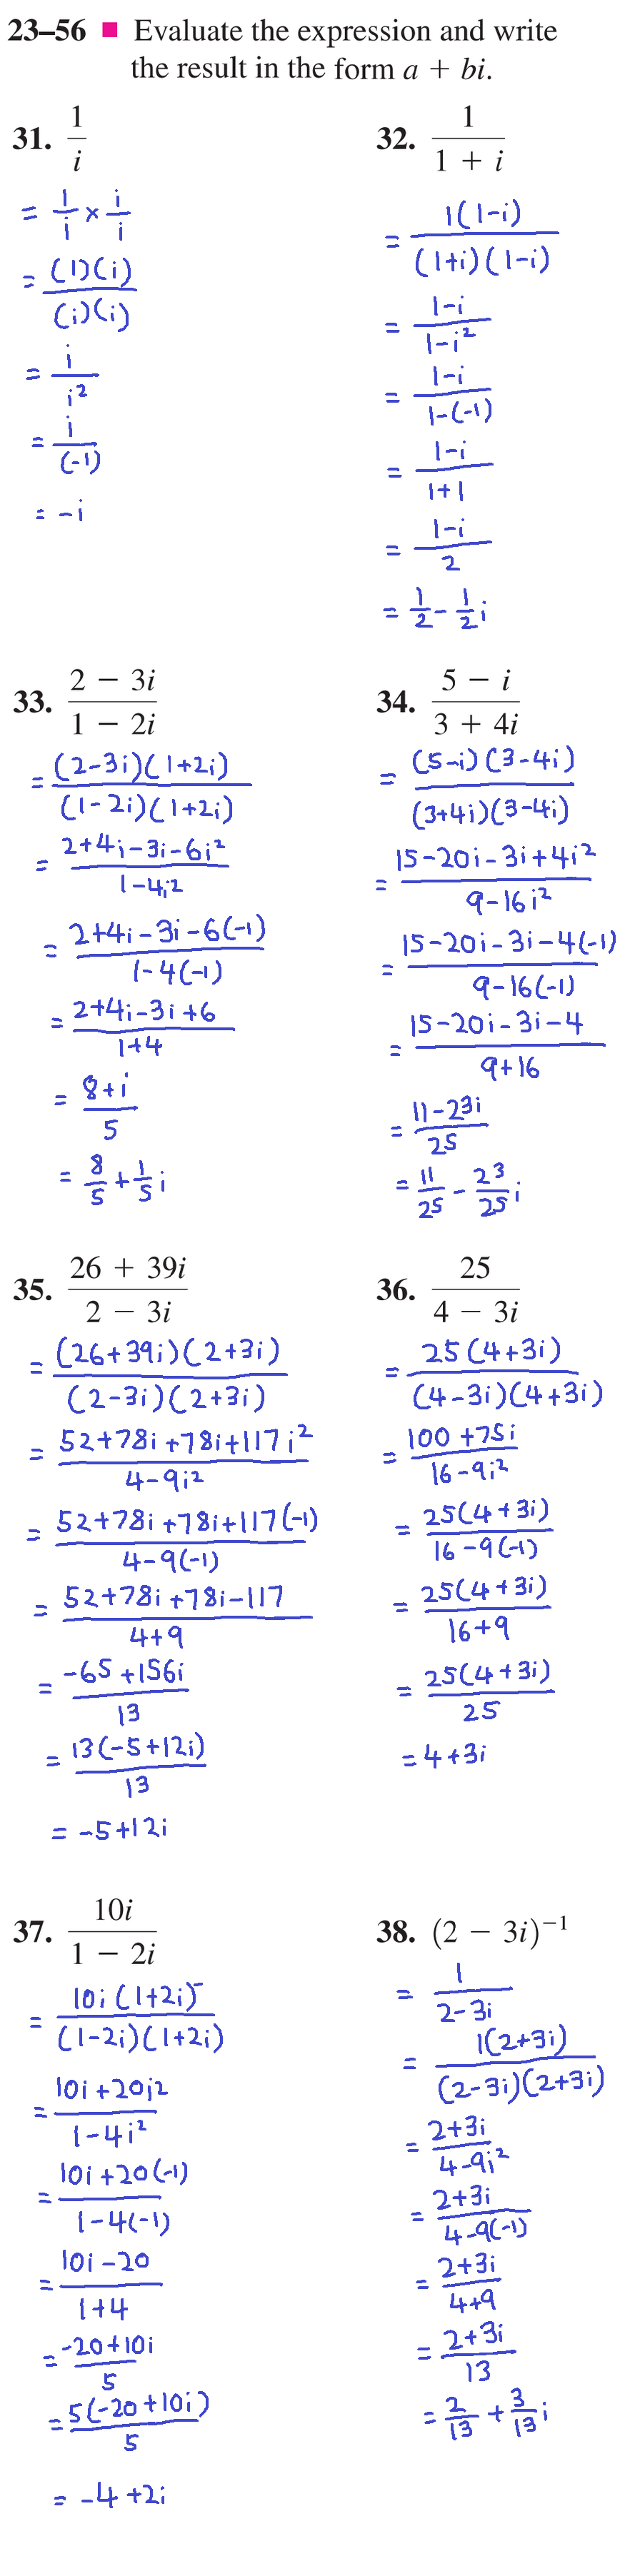 23–56 ■ Evaluate the expression and write
the result in the form a + bi.
31. 1/i
= 1/i × i/i
= (1)(i)/(i)(i)
= i/i²
= i/(-1)
= -i
32. 1/(1 + i)
= 1(1-i)/(1+i)(1-i)
= (1-i)/(1-i²)
= (1-i)/(1-(-1))
= (1-i)/(1+1)
= (1-i)/2
= 1/2 - 1/2 i
33. (2 − 3i)/(1 − 2i)
= (2-3i)(1+2i)/(1-2i)(1+2i)
= (2+4i-3i-6i²)/(1-4i²)
= (2+4i-3i-6(-1))/(1-4(-1))
= (2+4i-3i+6)/(1+4)
= (8+i)/5
= 8/5 + 1/5 i
34. (5 − i)/(3 + 4i)
= (5-i)(3-4i)/(3+4i)(3-4i)
= (15-20i-3i+4i²)/(9-16i²)
= (15-20i-3i-4(-1))/(9-16(-1))
= (15-20i-3i-4)/(9+16)
= (11-23i)/25
= 11/25 - 23/25 i
35. (26 + 39i)/(2 − 3i)
= (26+39i)(2+3i)/(2-3i)(2+3i)
= (52+78i+78i+117i²)/(4-9i²)
= (52+78i+78i+117(-1))/(4-9(-1))
= (52+78i+78i-117)/(4+9)
= (-65+156i)/13
= 13(-5+12i)/13
= -5+12i
36. 25/(4 − 3i)
= 25(4+3i)/(4-3i)(4+3i)
= (100+75i)/(16-9i²)
= 25(4+3i)/(16-9(-1))
= 25(4+3i)/(16+9)
= 25(4+3i)/25
= 4+3i
37. 10i/(1 − 2i)
= 10i(1+2i)/(1-2i)(1+2i)
= (10i+20i²)/(1-4i²)
= (10i+20(-1))/(1-4(-1))
= (10i-20)/(1+4)
= (-20+10i)/5
= 5(-20+10i)/5
= -4+2i
38. (2 − 3i)⁻¹
= 1/(2-3i)
= 1(2+3i)/(2-3i)(2+3i)
= (2+3i)/(4-9i²)
= (2+3i)/(4-9(-1))
= (2+3i)/(4+9)
= (2+3i)/13
= 2/13 + 3/13 i